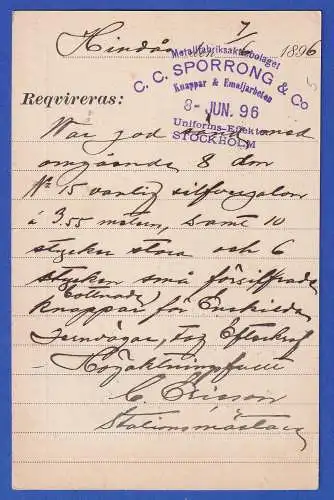 Hindås den 7/6 1896
Metallfabriksaktiebolaget
C. C. SPORRONG & Co
Knappar & Emaljarbeten
8- JUN. 96
Uniforms-Effekter
STOCKHOLM
Reqvireras:
War god sänd med
omgående 8 dm
No 15 vanlig silfvergalon
á 3.55 metern, samt 10
stycken stora och 6
stycken små försilfrade
knappar för Enskilda
Jernvägar, tag Efterkraf
Högaktningsfullt
C. Ericson
Stationsmästare